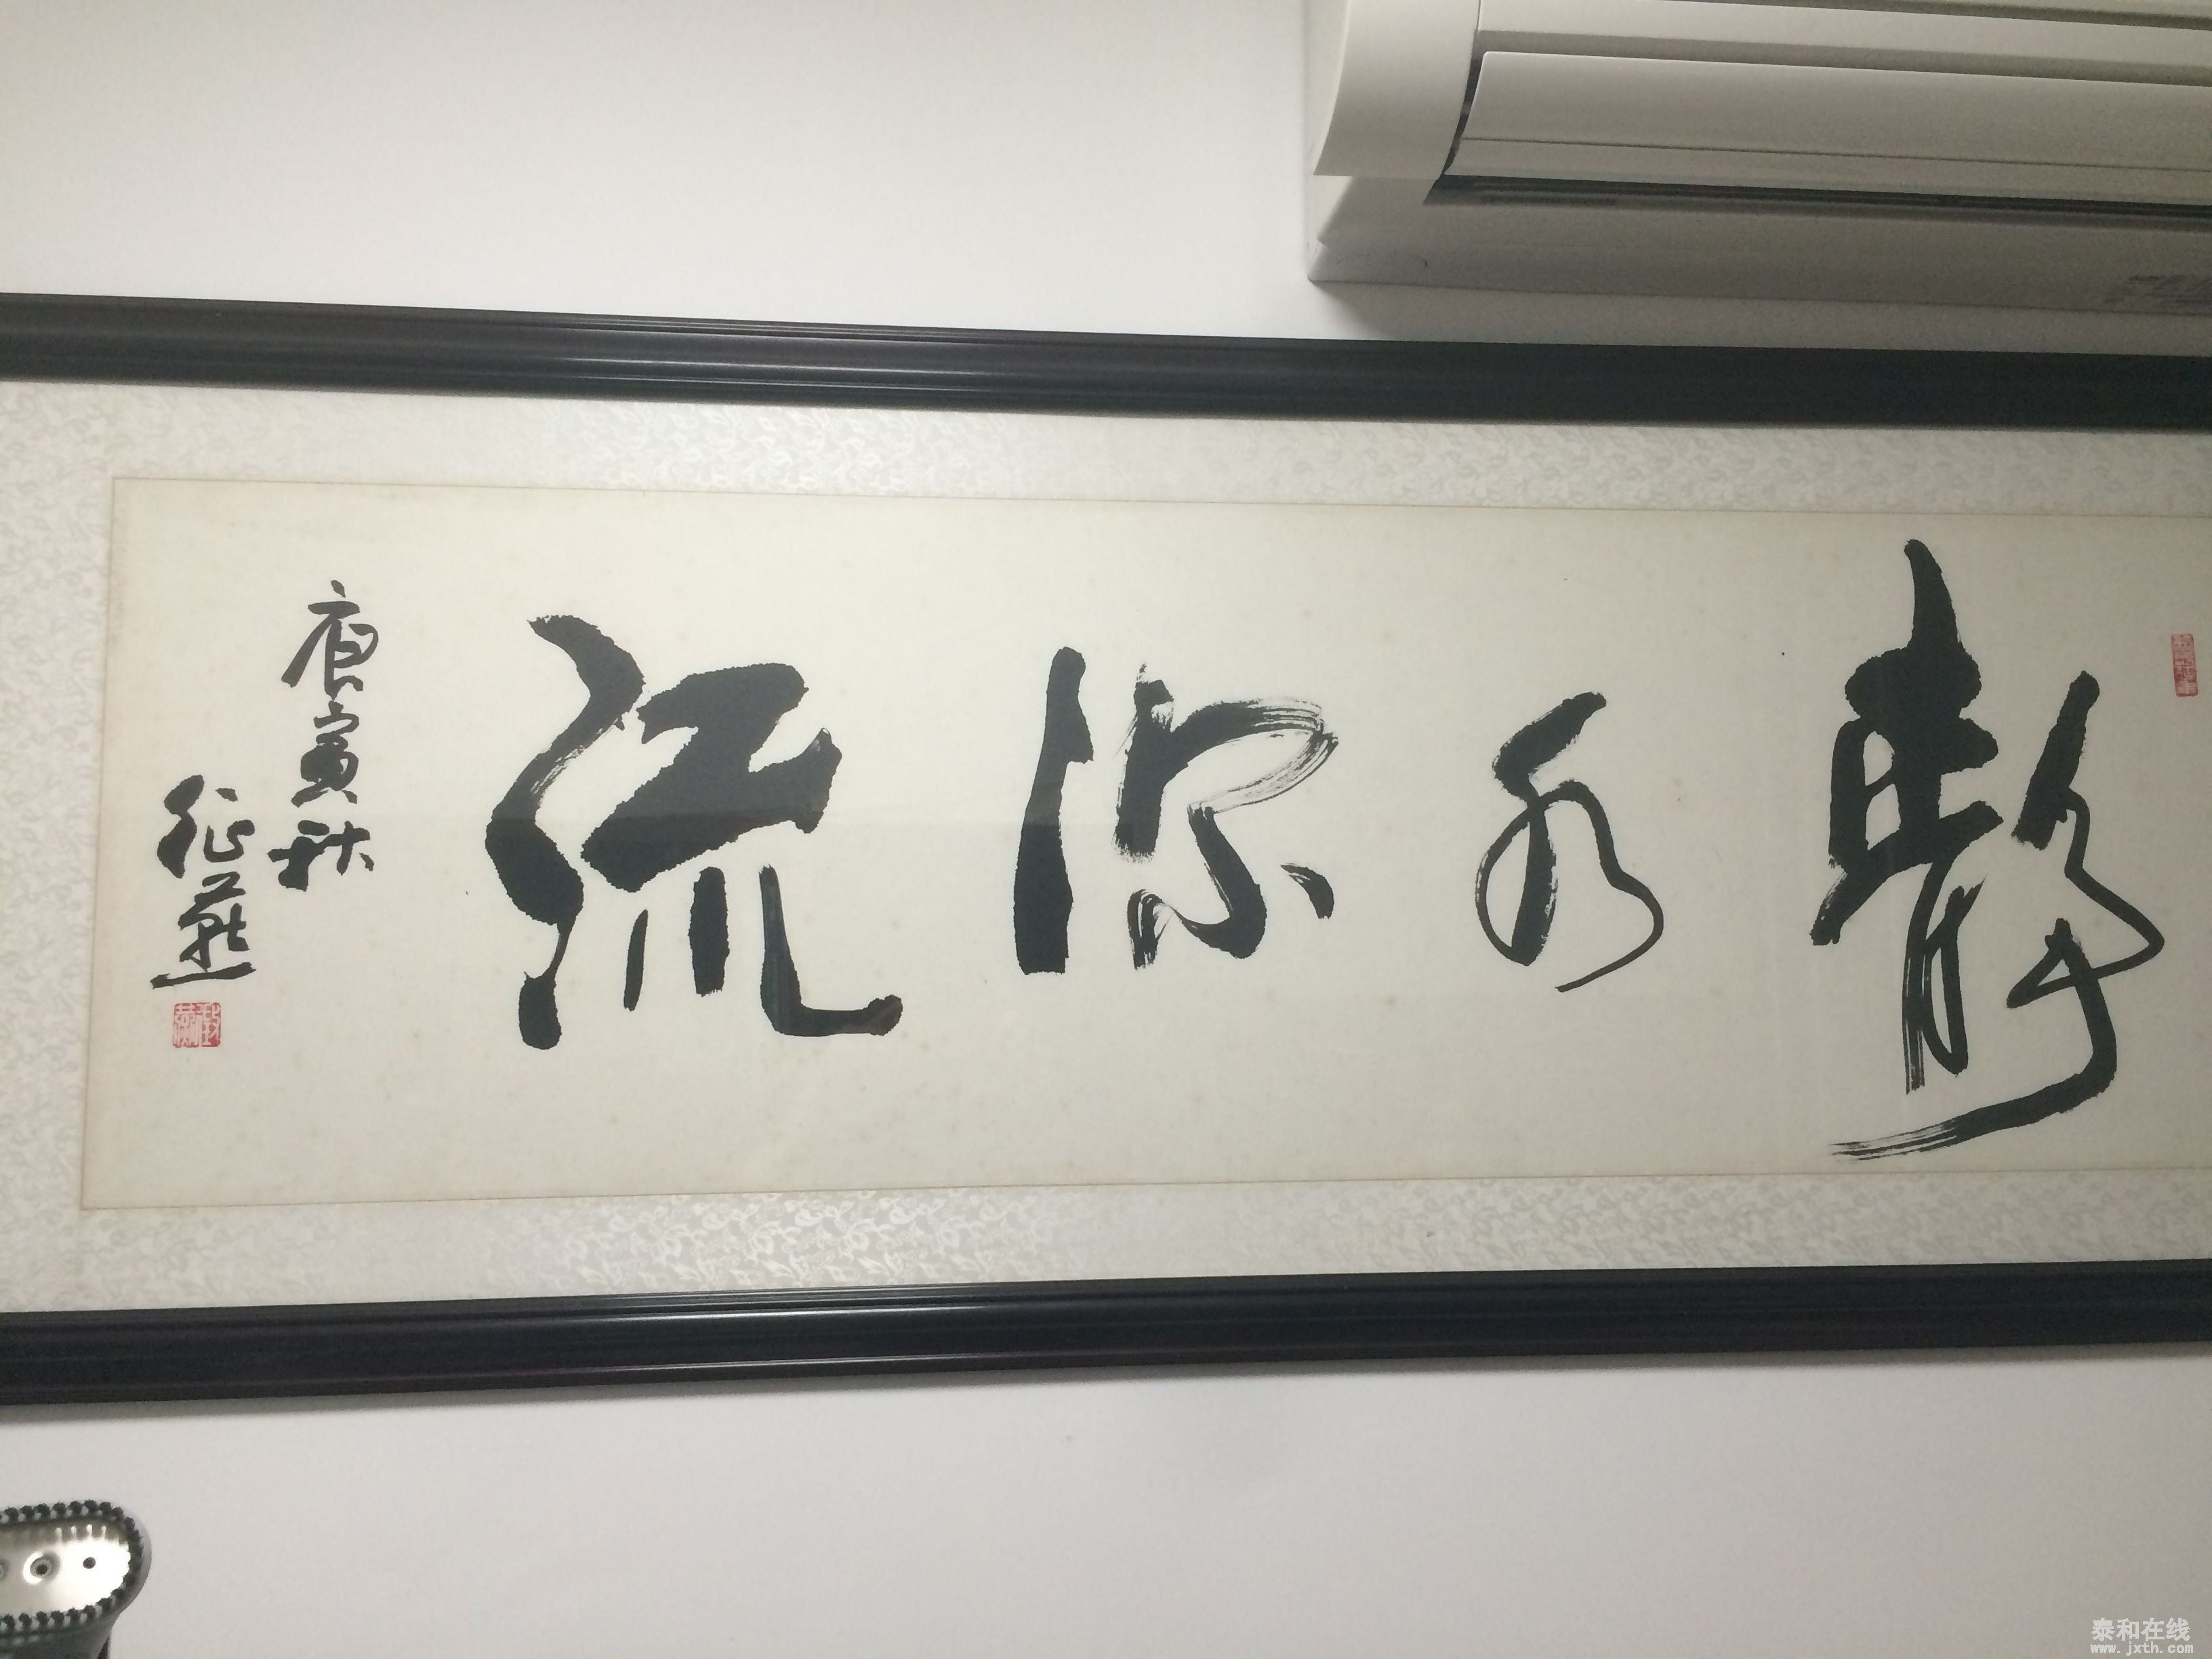 靜水深流
庚寅秋
征燕
泰和在线
www.jxth.com